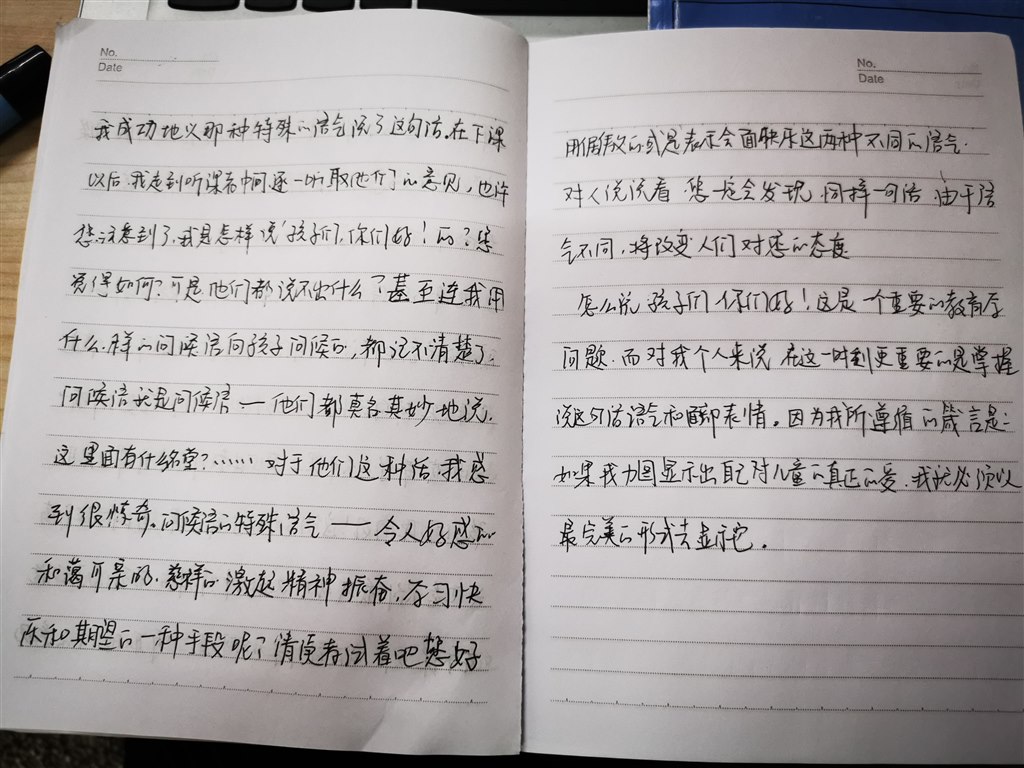 No.
Date
我成功地以那种特殊的语气说了这句话。在下课
以后,我走到听课者中间逐一听取他们的意见,也许
您注意到了,我是怎样说"孩子们,你们好!的?您
觉得如何?可是他们都说不出什么?甚至连我用
什么样的问候语向孩子问候的,都记不清楚了。
问候语就是问候语——他们都莫名其妙地说,
这里面有什么名堂?…… 对于他们这种话,我感
到很惊奇。问候语的特殊语气——令人好感的
和蔼可亲的、慈祥的激起精神振奋,学习快
乐和期望的一种手段呢?请读者试着吧您好
No.
Date
用傲的或是表示会面快乐这两种不同的语气。
对人说说看 您一定会发现,同样一句话 由于语
气不同,将改变人们对您的态度
怎么说 孩子们 你们好!这是一个重要的教育学
问题。而对我个人来说,在这一时刻更重要的是掌握
说这句话语气和脚表情。因为我所遵循的箴言是:
如果我力图显示出自己对儿童的真正的爱,我就必须以
最完美的形式去显示它。